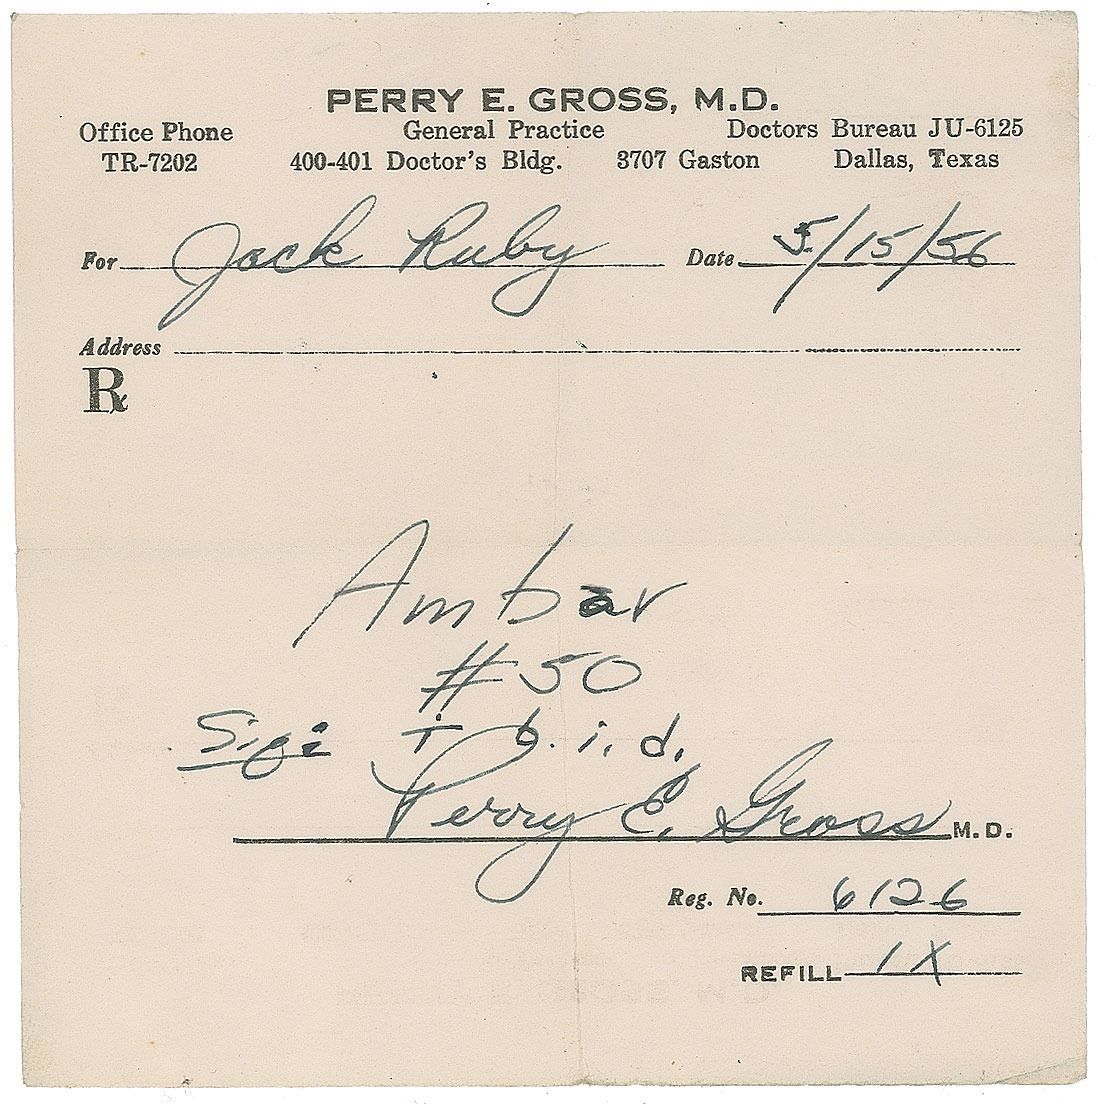 PERRY E. GROSS, M.D.
Office Phone General Practice Doctors Bureau JU-6125
TR-7202 400-401 Doctor's Bldg. 3707 Gaston Dallas, Texas
For Jack Ruby Date 5/15/56
Address
R
Ambar
#50
Sig: i b.i.d.
Perry E. Gross M.D.
Reg. No. 6126
REFILL 1X